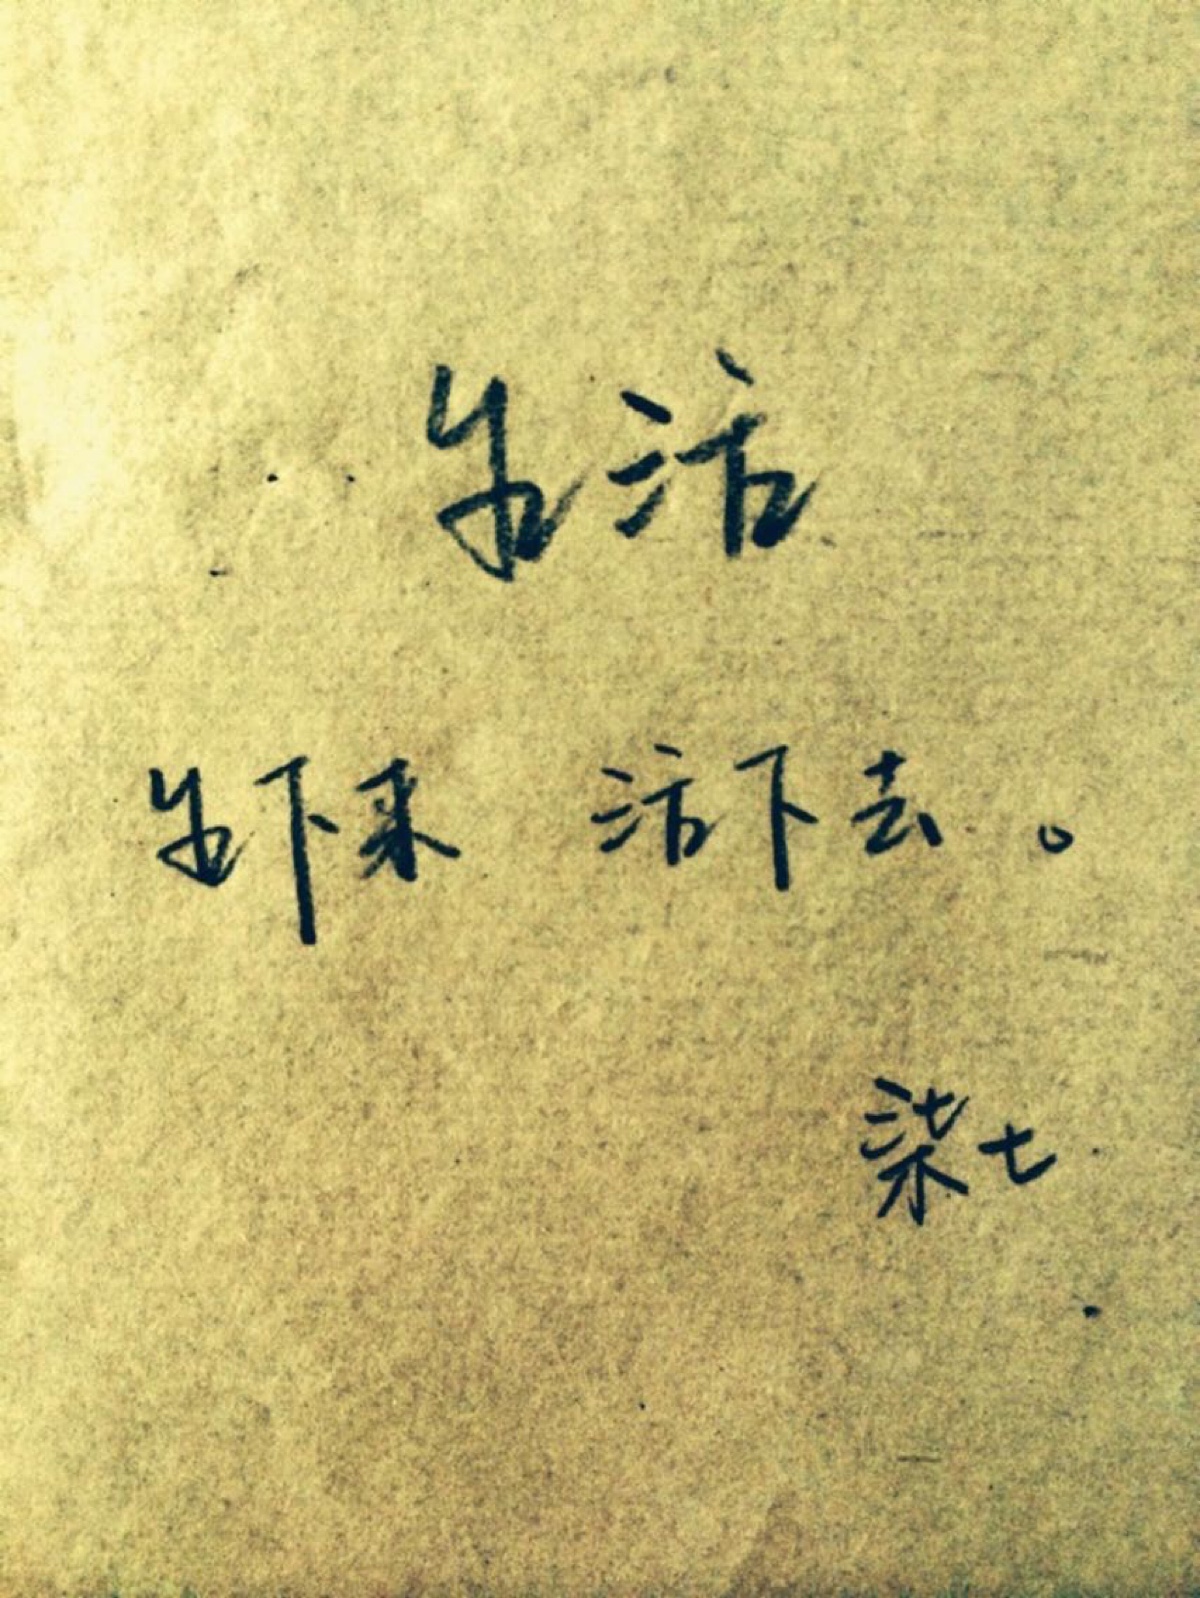 生活
生下来 活下去。
柒七